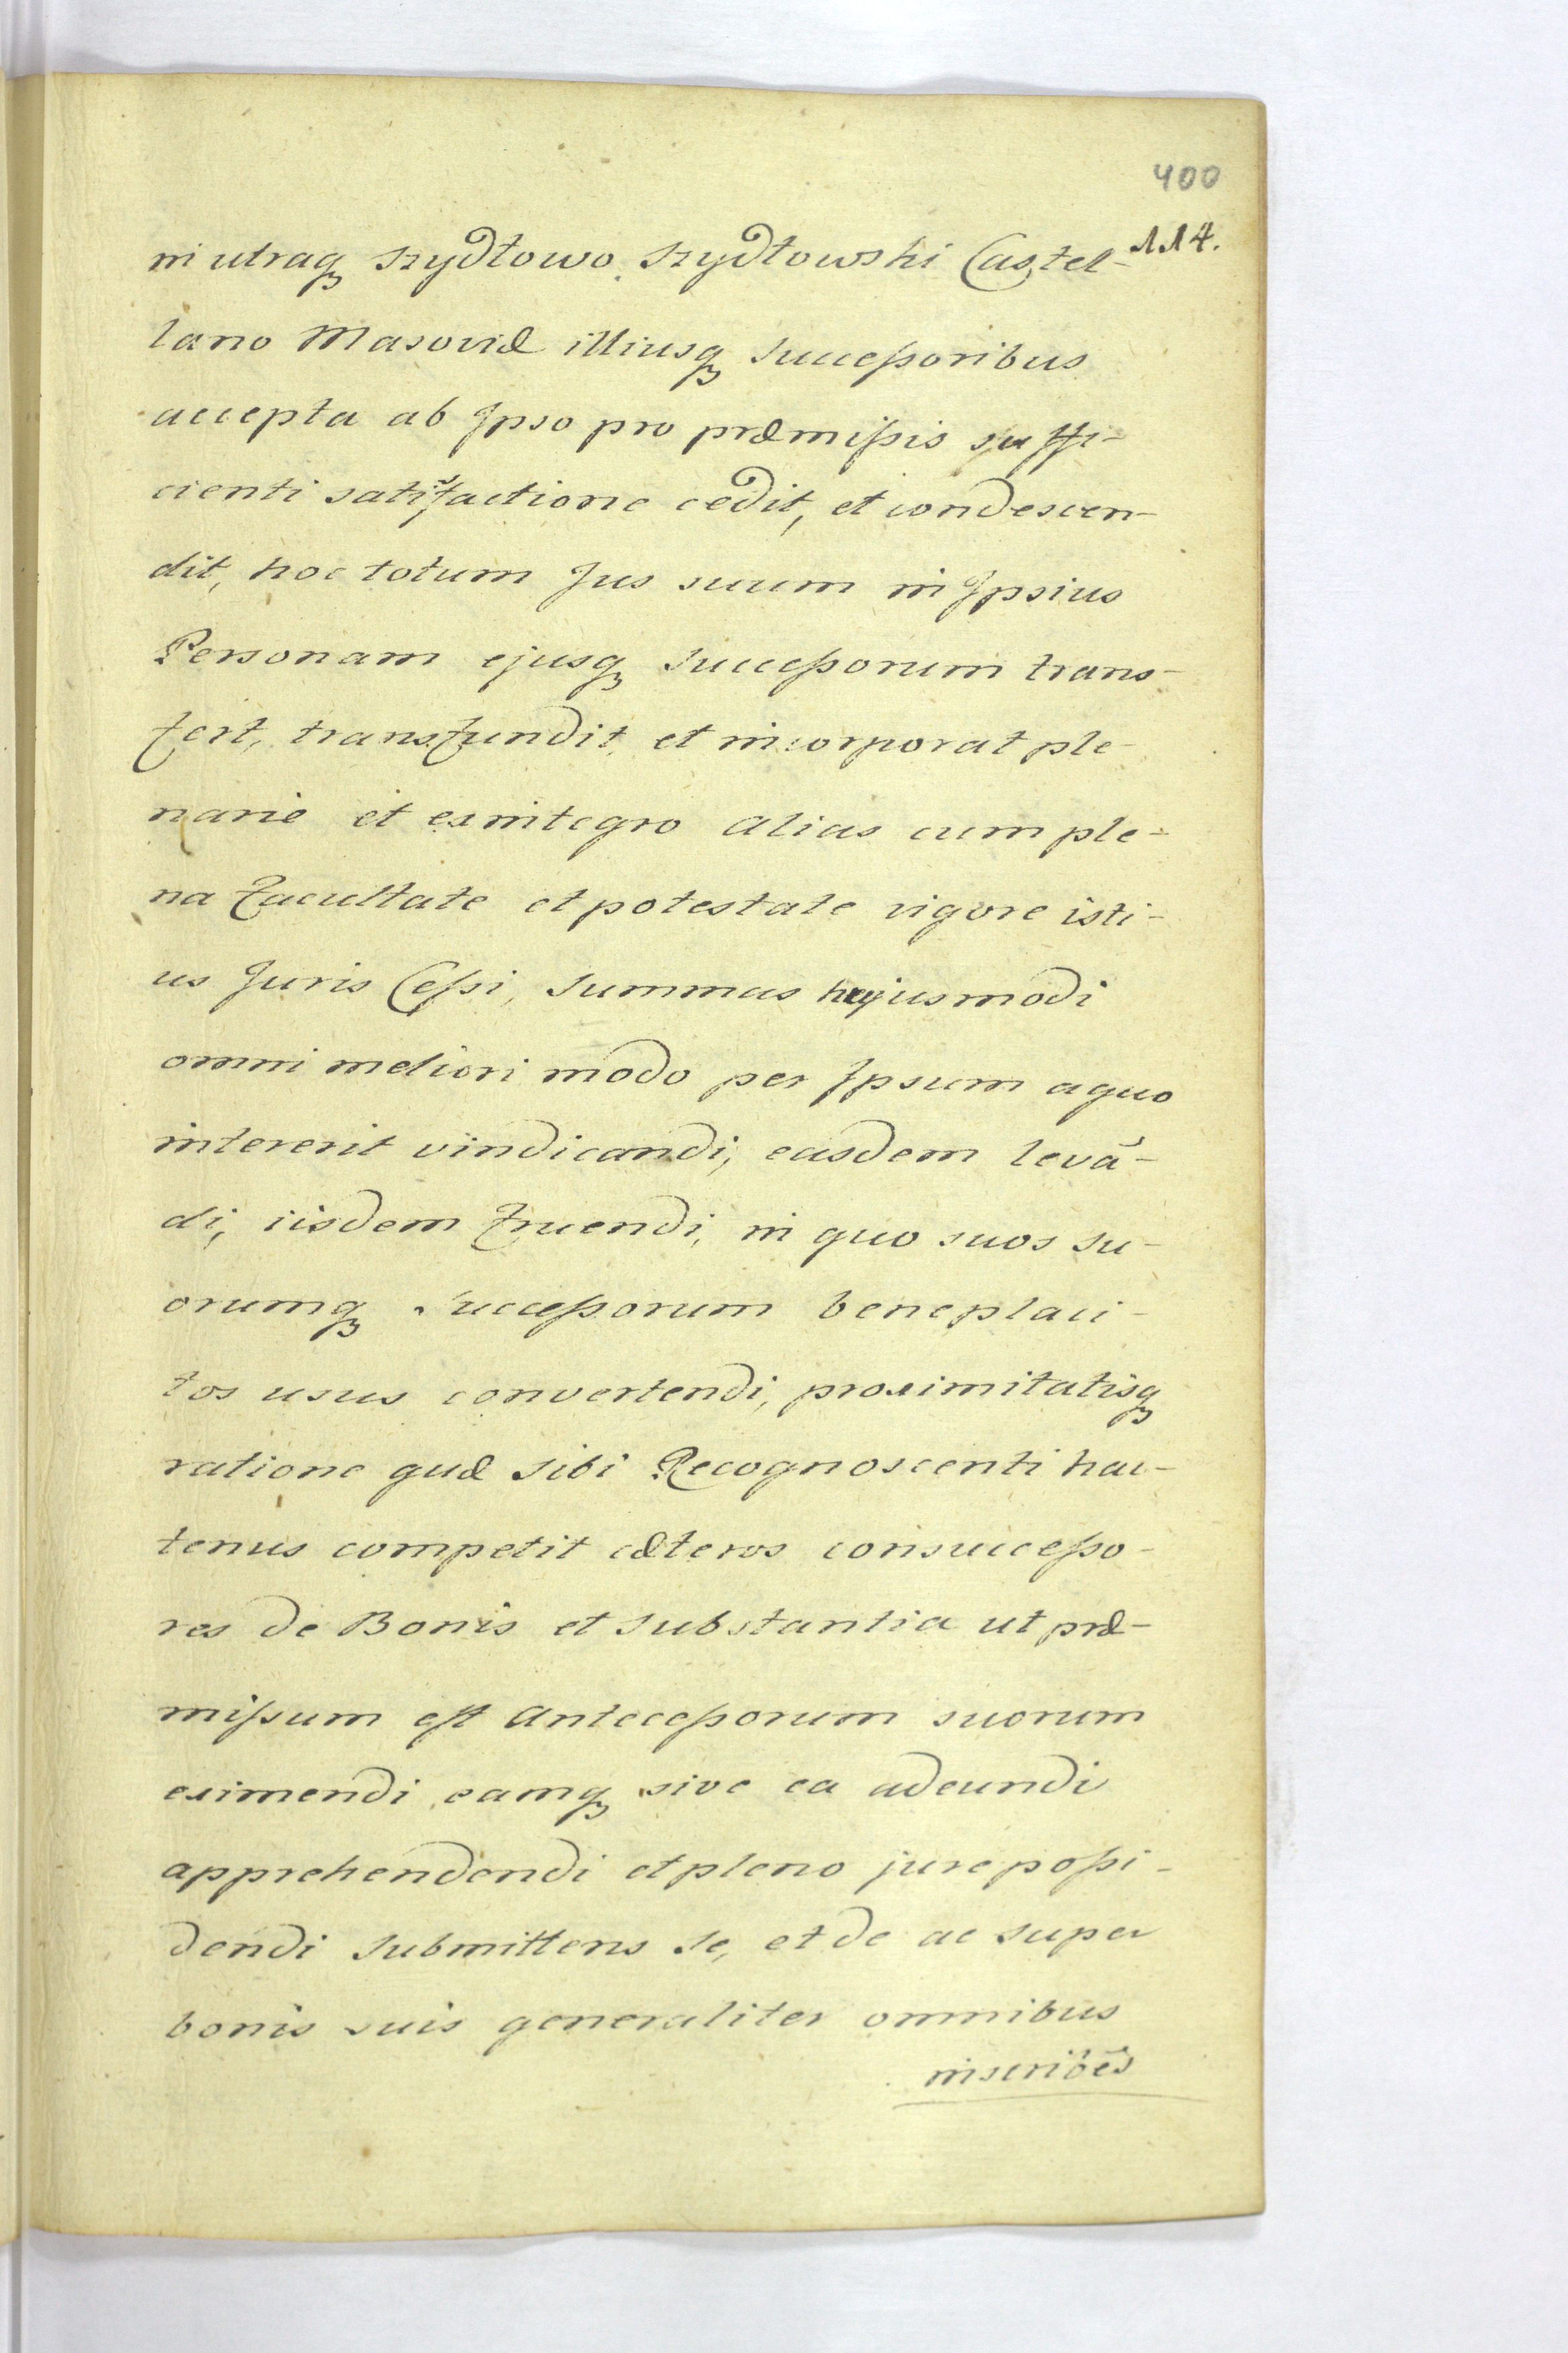 400
114.
in utraq Szydłowo Szydłowski Castel-
lano Masoviæ illiusq Successoribus
accepta ab Ipso pro præmissis suffi-
cienti satisfactione cedit, et condescen-
dit, hoc totum Jus suum in Ipsius
Personam ejusq Successorum trans-
fert, transfundit et incorporat ple-
narie et ex integro alias cum ple-
na facultate et potestate vigore isti-
us Juris Cessi, Summas hujusmodi
omni meliori modo per Ipsum a quo
intererit vindicandi, easdem levā-
di, iisdem fruendi, in quo suos su-
orumq Successorum beneplaci-
tos usus convertendi, proximitatisq
ratione quæ sibi Recognoscenti hac-
tenus competit cæteros consuccesso-
res de Bonis et Substantia ut præ-
missum est Antecessorum suorum
eximendi eamq sive ea adeundi
apprehendendi et pleno jure possi-
dendi Submittens se, et de ac super
bonis suis generaliter omnibus
inscriōēs